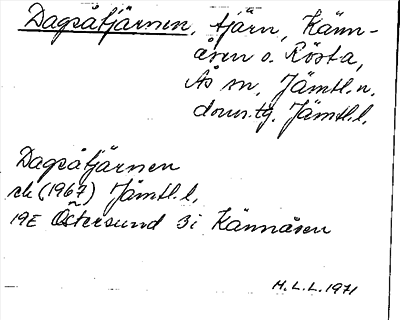 Dagsåtjärnen, tjärn, Känn-
åsen o. Rösta,
Ås sn, Jämtl. n.
doms.tg. Jämtl.l.
Dagsåtjärnen
rk (1967) Jämtl.l.
19E Östersund 3i Kännåsen
H.L.L. 1971